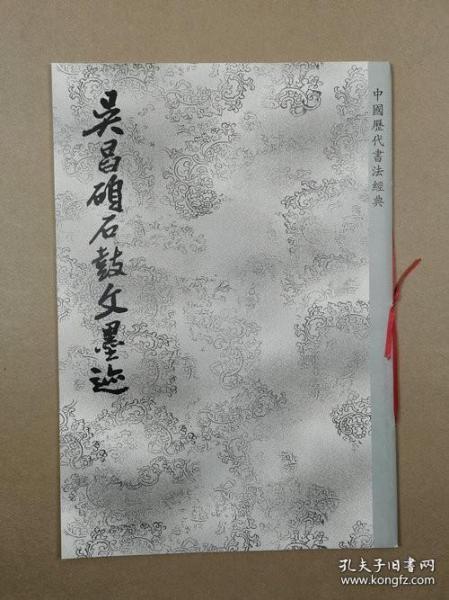 中國歷代書法經典
吴昌碩石鼓文墨迹
孔夫子旧書网
www.kongfz.com